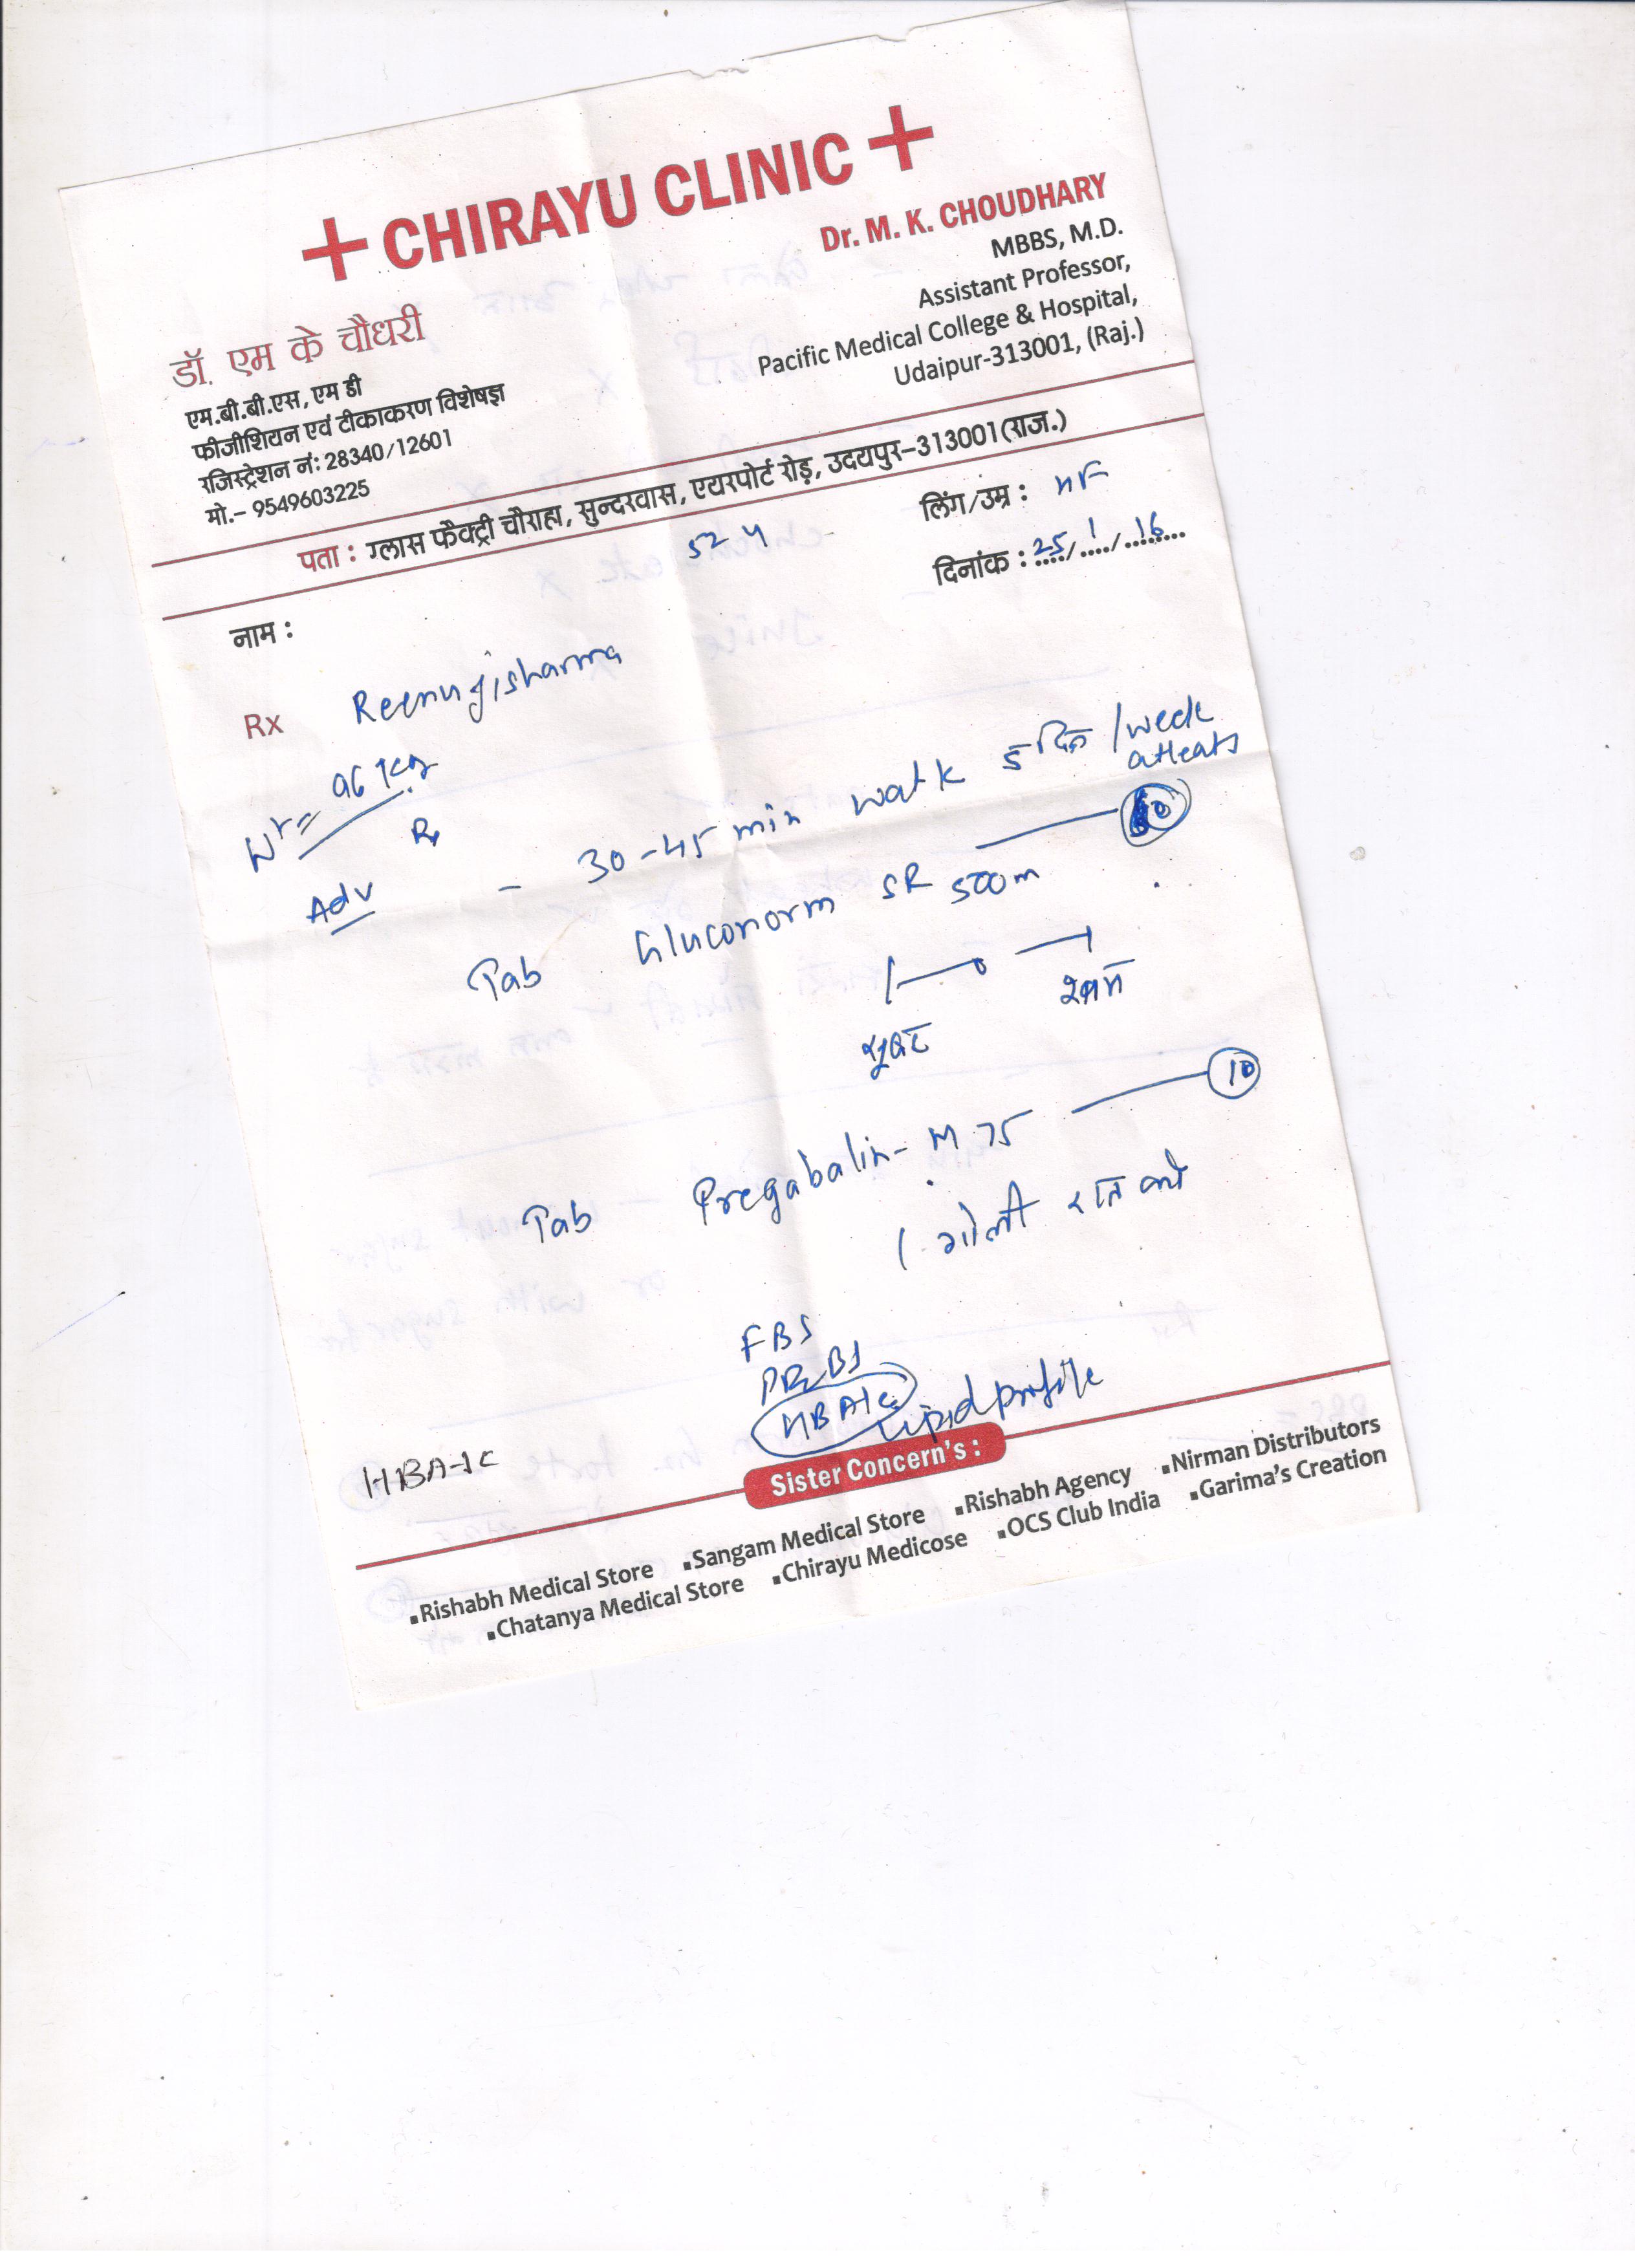 CHIRAYU CLINIC
Dr. M. K. CHOUDHARY
MBBS, M.D.
Assistant Professor,
Pacific Medical College & Hospital,
Udaipur-313001, (Raj.)
डॉ. एम के चौधरी
एम.बी.बी.एस, एम डी
फीजीशियन एवं टीकाकरण विशेषज्ञ
रजिस्ट्रेशन नं: 28340/12601
मो.- 9549603225
पता : ग्लास फैक्ट्री चौराहा, सुन्दरवास, एयरपोर्ट रोड़, उदयपुर-313001(राज.)
लिंग/उम्र :
52 y
दिनांक : 25/1/16
नाम :
Rx Reenu ji sharma
Wt = 96 Kg
Adv - 30-45 min walk 5 दिन /week
atleast
Tab Gluconorm SR 500m
सुबह शाम
Tab Pregabalin - M 75 10
1 गोली रात को
FBS
PPBS
HBA1c Lipid profile
HBA1C
Sister Concern's :
▪Rishabh Medical Store ▪Sangam Medical Store ▪Rishabh Agency ▪Nirman Distributors
▪Chatanya Medical Store ▪Chirayu Medicose ▪OCS Club India ▪Garima's Creation